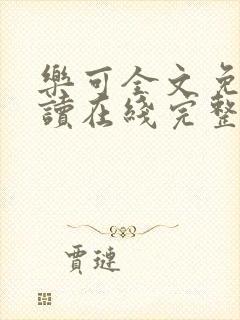 樂可全文免
讀在綫完整
賈璉